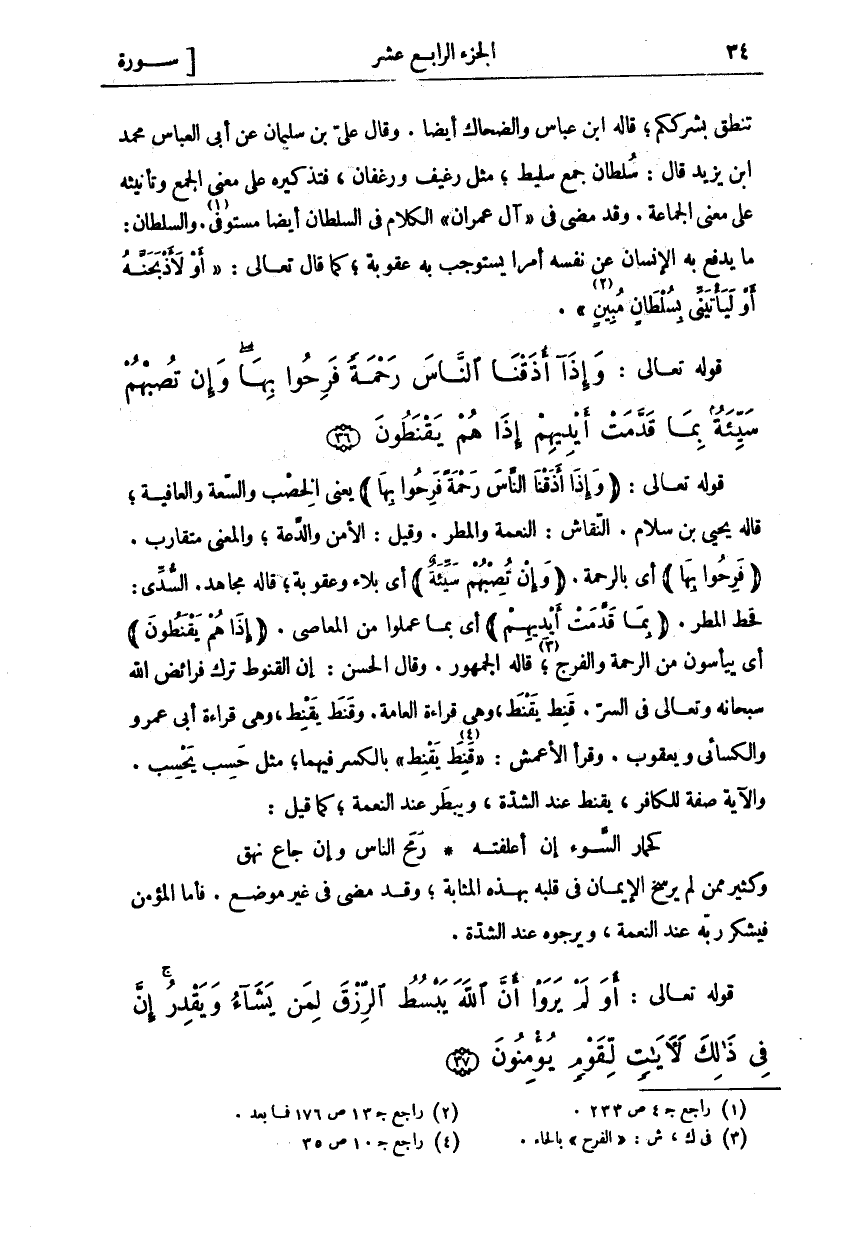 ٣٤ الجزء الرابع عشر [ ســورة
تنطق بشرككم؛ قاله ابن عباس والضحاك أيضا . وقال علىّ بن سليمان عن أبى العباس محمد
ابن يزيد قال : سُلطان جمع سليط ؛ مثل رغيف ورغفان ، فتذكيره على معنى الجمع وتأنيثه
على معنى الجماعة . وقد مضى فى «آل عمران» الكلام فى السلطان أيضا مستوفًى(١). والسلطان :
ما يدفع به الإنسان عن نفسه أمرا يستوجب به عقوبة ؛ كما قال تعـالى : « أَوْ لَأَذْبَحَنَّـهُ
أَوْ لَيَأْتِيَنِّى بِسُلْطَانٍ مُبِينٍ(٢) » .
قوله تعـالى : وَإِذَآ أَذَقْنَـا ٱلنَّـاسَ رَحْمَةً فَرِحُوا بِهَـا ۖ وَإِن تُصِبْهُمْ
سَيِّئَةٌۢ بِمَـا قَدَّمَتْ أَيْدِيهِمْ إِذَا هُمْ يَقْنَطُونَ ﴿٣٦﴾
قوله تعـالى : ﴿ وَإِذَا أَذَقْنَا النَّاسَ رَحْمَةً فَرِحُوا بِهَا ﴾ يعنى الخِصْب والسّعة والعافيـة ؛
قاله يحيى بن سلام . النّقاش : النعمة والمطر . وقيل : الأمن والدَّعة ؛ والمعنى متقارب .
﴿ فَرِحُوا بِهَا ﴾ أى بالرحمة . ﴿ وَإِنْ تُصِبْهُمْ سَيِّئَةٌ ﴾ أى بلاء وعقوبة؛ قاله مجاهد. السُّدِّى :
قحط المطر . ﴿ بِمَـا قَدَّمَتْ أَيْدِيهِـمْ ﴾ أى بمـا عملوا من المعاصى . ﴿ إِذَا هُمْ يَقْنَطُونَ ﴾
أى ييأسون من الرحمة والفرج(٣)؛ قاله الجمهور . وقال الحسن : إن القنوط ترك فرائض الله
سبحانه وتعـالى فى السرّ . قَنِط يَقْنَط، وهى قراءة العامة. وقَنَط يَقْنِط، وهى قراءة أبى عمرو
والكسائى ويعقوب . وقرأ الأعمش : «قَنِطَ يَقْنِط(٤)» بالكسر فيهما؛ مثل حَسِب يَحْسِب .
والآية صفة للكافر ، يقنط عند الشدّة ، ويبطَر عند النعمة ؛ كما قيل :
كحمار السَّـوء إن أعلفتـه * رَمَح الناس وإن جاع نهق
وكثير ممن لم يرسخ الإيمـان فى قلبه بهـذه المثابة ؛ وقـد مضى فى غير موضـع . فأما المؤمن
فيشكر ربّه عند النعمة ، ويرجوه عند الشدّة .
قوله تعـالى : أَوَ لَمْ يَرَوْا أَنَّ ٱللَّهَ يَبْسُطُ ٱلرِّزْقَ لِمَن يَشَآءُ وَيَقْدِرُ ۚ إِنَّ
فِى ذَٰلِكَ لَآيَـٰتٍ لِّقَوْمٍ يُؤْمِنُونَ ﴿٣٧﴾
(١) راجع جـ ٤ ص ٢٣٣ . (٢) راجع جـ ١٣ ص ١٧٦ فـا بعد .
(٣) فى ك ، ش : « الفرح » بالحاء . (٤) راجع جـ ١٠ ص ٣٥